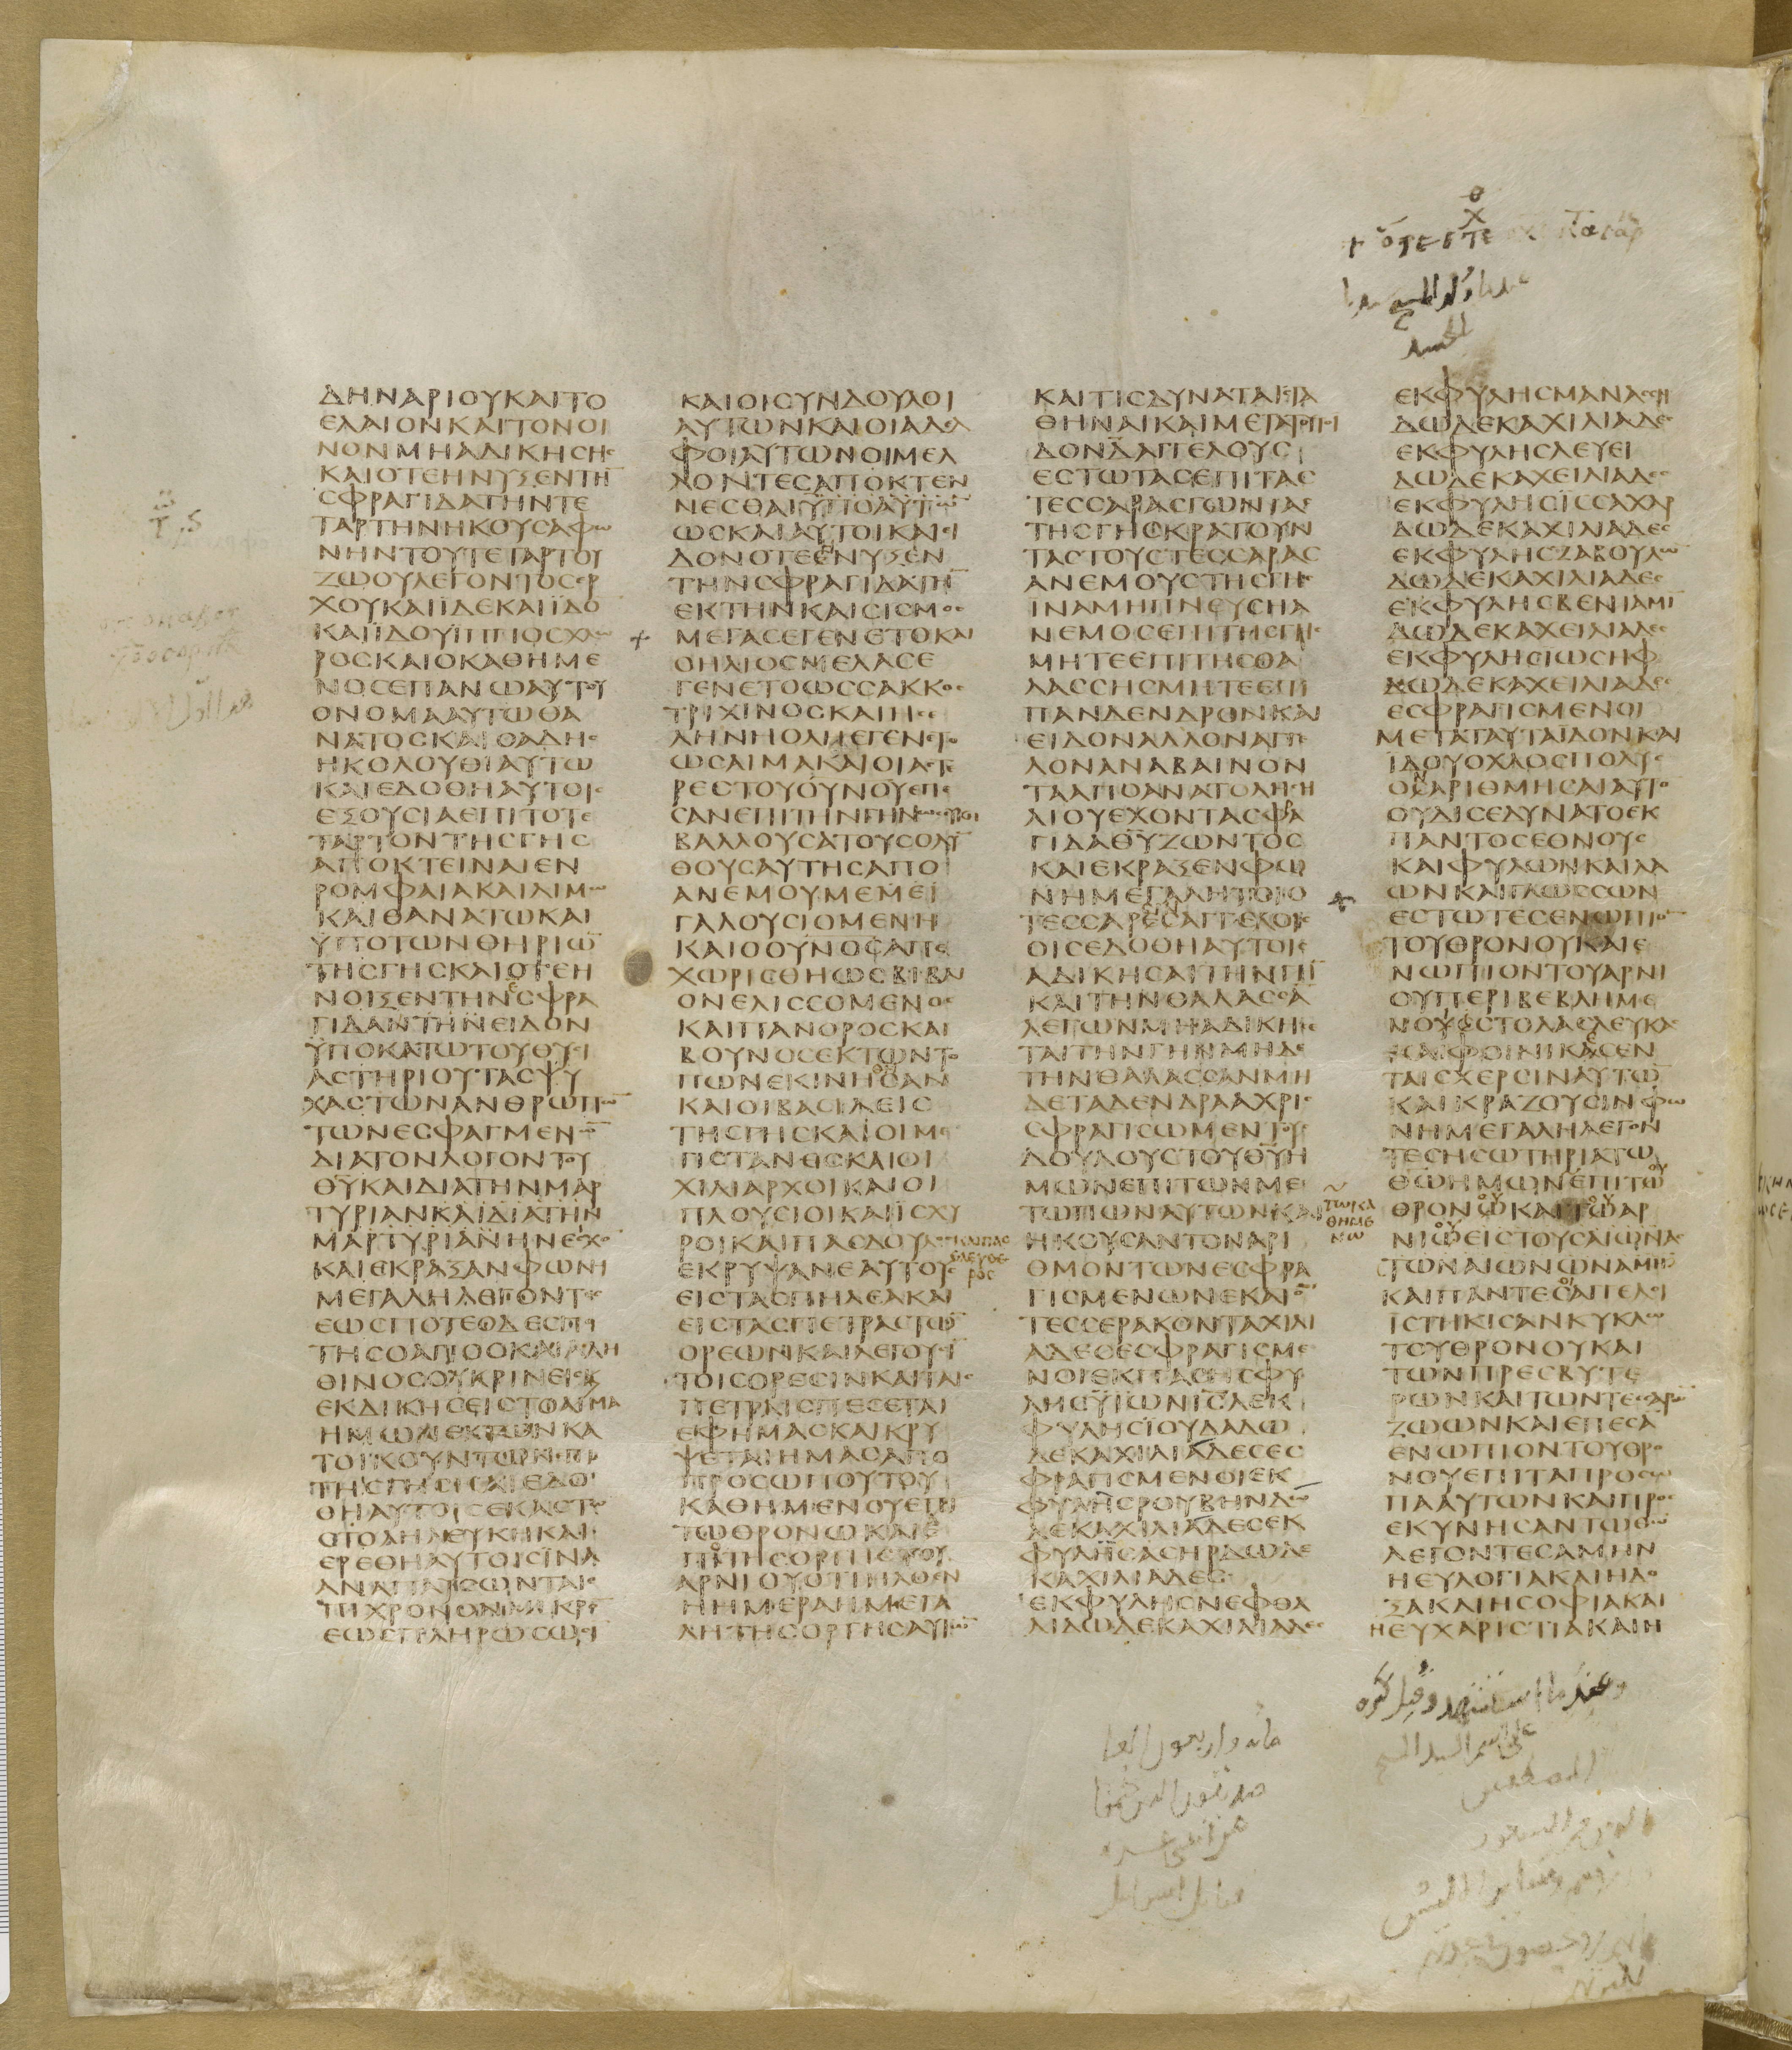 ΔΗΝΑΡΙΟΥΚΑΙΤΟ
ΕΛΑΙΟΝΚΑΙΤΟΝΟΙ
ΝΟΝΜΗΑΔΙΚΗCΗC
ΚΑΙΟΤΕΗΝΥΞΕΝΤΗ̅
CΦΡΑΓΙΔΑΤΗΝΤΕ
ΤΑΡΤΗΝΗΚΟΥCΑΦΩ
ΝΗΝΤΟΥΤΕΤΑΡΤΟΥ
ΖΩΟΥΛΕΓΟΝΤΟCΕΡ
ΧΟΥΚΑΙΪΔΕΚΑΙΪΔΟ
ΚΑΙΪΔΟΥΪΠΠΟCΧΛΩ
ΡΟCΚΑΙΟΚΑΘΗΜΕ
ΝΟCΕΠΑΝΩΑΥΤΟΥ
ΟΝΟΜΑΑΥΤΩΘΑ
ΝΑΤΟCΚΑΙΟΑΔΗC
ΗΚΟΛΟΥΘΙΑΥΤΩ
ΚΑΙΕΔΟΘΗΑΥΤΟΙC
ΕΞΟΥCΙΑΕΠΙΤΟΤΕ
ΤΑΡΤΟΝΤΗCΓΗC
ΑΠΟΚΤΕΙΝΑΙΕΝ
ΡΟΜΦΑΙΑΚΑΙΛΙΜΩ
ΚΑΙΘΑΝΑΤΩΚΑΙ
ΫΠΟΤΩΝΘΗΡΙΩ̅
ΤΗCΓΗCΚΑΙΟΤΕΗ
ΝΟΙΞΕΝΤΗΝΕCΦΡΑ
ΓΙΔΑΝΤΗΝΕΙΔΟΝ
ΫΠΟΚΑΤΩΤΟΥΘΥCΙ
ΑCΤΗΡΙΟΥΤΑCΨΥ
ΧΑCΤΩΝΑΝΘΡΩΠΩ̅
ΤΩΝΕCΦΑΓΜΕΝΩ̅
ΔΙΑΤΟΝΛΟΓΟΝΤΟΥ
ΘΥΚΑΙΔΙΑΤΗΝΜΑΡ
ΤΥΡΙΑΝΚΑΙΔΙΑΤΗΝ
ΜΑΡΤΥΡΙΑΝΗΝΕΙΧΟ̅
ΚΑΙΕΚΡΑΞΑΝΦΩΝΗ
ΜΕΓΑΛΗΛΕΓΟΝΤΕC
ΕΩCΠΟΤΕΟΔΕCΠΟ
ΤΗCΟΑΓΙΟCΚΑΙΑΛΗ
ΘΙΝΟCΟΥΚΡΙΝΕΙCΚ
ΕΚΔΙΚΗCΕΙCΤΟΑΙΜΑ
ΗΜΩΝΕΚΤΩΝΚΑ
ΤΟΙΚΟΥΝΤΩΝΕΠΙ
ΤΗCΓΗCΚΑΙΕΔΟ
ΘΗΑΥΤΟΙCΕΚΑCΤΩ
CΤΟΛΗΛΕΥΚΗΚΑΙ
ΕΡΕΘΗΑΥΤΟΙCΪΝΑ
ΑΝΑΠΑΥCΩΝΤΑΙΕ
ΤΙΧΡΟΝΟΝΜΙΚΡΟ̅
ΕΩCΠΛΗΡΩCΩCΙ
ΚΑΙΟΙCΥΝΔΟΥΛΟΙ
ΑΥΤΩΝΚΑΙΟΙΑΔΕΛ
ΦΟΙΑΥΤΩΝΟΙΜΕΛ
ΛΟΝΤΕCΑΠΟΚΤΕΝ
ΝΕCΘΑΙΫΠΟΑΥΤΩ̅
ΩCΚΑΙΑΥΤΟΙΚΑΙΕΙ
ΔΟΝΟΤΕΕΝΥΞΕΝ
ΤΗΝCΦΡΑΓΙΔΑΤΗ̅
ΕΚΤΗΝΚΑΙCΙCΜΟC
ΜΕΓΑCΕΓΕΝΕΤΟΚΑΙ
ΟΗΛΙΟCΜΕΛΑCΕ
ΓΕΝΕΤΟΩCCΑΚΚΟC
ΤΡΙΧΙΝΟCΚΑΙΗCΕ
ΛΗΝΗΟΛΗΕΓΕΝΕΤΟ
ΩCΑΙΜΑΚΑΙΟΙΑCΤΕ
ΡΕCΤΟΥΟΥΝΟΥΕΠΕ
CΑΝΕΠΙΤΗΝΓΗΝ
ΒΑΛΛΟΥCΑΤΟΥCΟΛΥ̅
ΘΟΥCΑΥΤΗCΑΠΟ
ΑΝΕΜΟΥΜΕΜΕΙ
ΓΑΛΟΥCΙΟΜΕΝΗ
ΚΑΙΟΟΥΝΟCΑΠΕ
ΧΩΡΙCΘΗΩCΒΙΒΛΙ
ΟΝΕΛΙCCΟΜΕΝΟC
ΚΑΙΠΑΝΟΡΟCΚΑΙ
ΒΟΥΝΟCΕΚΤΩΝΤΟ
ΠΩΝΕΚΙΝΗCΑΝ
ΚΑΙΟΙΒΑCΙΛΕΙC
ΤΗCΓΗCΚΑΙΟΙΜΕ
ΓΙCΤΑΝΕCΚΑΙΟΙ
ΧΙΛΙΑΡΧΟΙΚΑΙΟΙ
ΠΛΟΥCΙΟΙΚΑΙΪCΧΥ
ΡΟΙΚΑΙΠΑCΔΟΥΛΟC ΚΑΙΠΑC
ΕΛΕΥΘΕ
ΡΟC
ΕΚΡΥΨΑΝΕΑΥΤΟΥC
ΕΙCΤΑCΠΗΛΕΑΚΑΙ
ΕΙCΤΑCΠΕΤΡΑCΤΩ̅
ΟΡΕΩΝΚΑΙΛΕΓΟΥCΙ̅
ΤΟΙCΟΡΕCΙΝΚΑΙΤΑΙC
ΠΕΤΡΑΙCΠΕCΕΤΑΙ
ΕΦΗΜΑCΚΑΙΚΡΥ
ΨΕΤΑΙΗΜΑCΑΠΟ
ΠΡΟCΩΠΟΥΤΟΥ
ΚΑΘΗΜΕΝΟΥΕΠΙ
ΤΩΘΡΟΝΩΚΑΙΕ
ΠΙΤΗCΟΡΓΗCΤΟΥ
ΑΡΝΙΟΥΟΤΙΗΛΘΕΝ
ΗΗΜΕΡΑΗΜΕΓΑ
ΛΗΤΗCΟΡΓΗCΑΥΤΩ̅
ΚΑΙΤΙCΔΥΝΑΤΑΙCΤΑ
ΘΗΝΑΙΚΑΙΜΕΤΑΤΟΥΤΟΙ
ΔΟΝΔ̅ΑΓΓΕΛΟΥC
ΕCΤΩΤΑCΕΠΙΤΑC
ΤΕCCΑΡΑCΓΩΝΙΑC
ΤΗCΓΗCΚΡΑΤΟΥΝ
ΤΑCΤΟΥCΤΕCCΑΡΑC
ΑΝΕΜΟΥCΤΗCΓΗC
ΙΝΑΜΗΠΝΕΥCΗΑ
ΝΕΜΟCΕΠΙΤΗCΓΗC
ΜΗΤΕΕΠΙΤΗCΘΑ
ΛΑCCΗCΜΗΤΕΕΠΙ
ΠΑΝΔΕΝΔΡΟΝΚΑΙ
ΕΙΔΟΝΑΛΛΟΝΑΓΓΕ
ΛΟΝΑΝΑΒΑΙΝΟΝ
ΤΑΑΠΟΑΝΑΤΟΛΗCΗ
ΛΙΟΥΕΧΟΝΤΑCΦΡΑ
ΓΙΔΑΘΥΖΩΝΤΟC
ΚΑΙΕΚΡΑΞΕΝΦΩ
ΝΗΜΕΓΑΛΗΤΟΙC
ΤΕCCΑΡΕCΑΓΓΕΛΟΙC
ΟΙCΕΔΟΘΗΑΥΤΟΙC
ΑΔΙΚΗCΑΙΤΗΝΓΗ̅
ΚΑΙΤΗΝΘΑΛΑCCΑ̅
ΛΕΓΩΝΜΗΑΔΙΚΗC
ΤΑΙΤΗΝΓΗΝΜΗΔΕ
ΤΗΝΘΑΛΑCCΑΝΜΗ
ΔΕΤΑΔΕΝΔΡΑΑΧΡΙC
CΦΡΑΓΙCΩΜΕΝΤΟΥC
ΔΟΥΛΟΥCΤΟΥΘΥΗ
ΜΩΝΕΠΙΤΩΝΜΕ
ΤΩΠΩΝΑΥΤΩΝΚΑΙ
ΗΚΟΥCΑΝΤΟΝΑΡΙ
ΘΜΟΝΤΩΝΕCΦΡΑ
ΓΙCΜΕΝΩΝΕΚΑΤΟ̅
ΤΕCCΕΡΑΚΟΝΤΑΧΙΛΙ
ΑΔΕCΕCΦΡΑΓΙCΜΕ
ΝΟΙΕΚΠΑCΗCΦΥ
ΛΗCΥΪΩΝΙCΛΕΚ
ΦΥΛΗCΪΟΥΔΑΔΩ
ΔΕΚΑΧΙΛΙΑΔΕCΕC
ΦΡΑΓΙCΜΕΝΟΙΕΚ
ΦΥΛΗCΡΟΥΒΗΝΔΩ
ΔΕΚΑΧΙΛΙΑΔΕCΕΚ
ΦΥΛΗCΑCΗΡΔΩΔΕ
ΚΑΧΙΛΙΑΔΕC
ΕΚΦΥΛΗCΝΕΦΘΑ
ΛΙΔΩΔΕΚΑΧΙΛΙΑΔΕC
ΕΚΦΥΛΗCΜΑΝΑCCΗ
ΔΩΔΕΚΑΧΙΛΙΑΔΕC
ΕΚΦΥΛΗCΛΕΥΕΙ
ΔΩΔΕΚΑΧΕΙΛΙΑΔΕC
ΕΚΦΥΛΗCΪCCΑΧΑΡ
ΔΩΔΕΚΑΧΙΛΙΑΔΕC
ΕΚΦΥΛΗCΖΑΒΟΥΛΩ̅
ΔΩΔΕΚΑΧΙΛΙΑΔΕC
ΕΚΦΥΛΗCΒΕΝΙΑΜΙ̅
ΔΩΔΕΚΑΧΕΙΛΙΑΔΕC
ΕΚΦΥΛΗCΙΩCΗΦ
ΔΩΔΕΚΑΧΕΙΛΙΑΔΕC
ΕCΦΡΑΓΙCΜΕΝΟΙ
ΜΕΤΑΤΑΥΤΑΙΔΟΝΚΑΙ
ΙΔΟΥΟΧΛΟCΠΟΛΥC
ΟΝΑΡΙΘΜΗCΑΙΑΥΤΟ
ΟΥΔΙCΕΔΥΝΑΤΟΕΚ
ΠΑΝΤΟCΕΘΝΟΥC
ΚΑΙΦΥΛΩΝΚΑΙΛΑ
ΩΝΚΑΙΓΛΩCCΩΝ
ΕCΤΩΤΕCΕΝΩΠΙΟ̅
ΤΟΥΘΡΟΝΟΥΚΑΙΕ
ΝΩΠΙΟΝΤΟΥΑΡΝΙ
ΟΥΠΕΡΙΒΕΒΛΗΜΕ
ΝΟΥCCΤΟΛΑCΛΕΥΚΑC
ΚΑΙΦΟΙΝΙΚΑCΕΝ
ΤΑΙCΧΕΡCΙΝΑΥΤΩ̅
ΚΑΙΚΡΑΖΟΥCΙΝΦΩ
ΝΗΜΕΓΑΛΗΛΕΓΟΝ
ΤΕCΗCΩΤΗΡΙΑΤΩ
ΘΩΗΜΩΝΕΠΙΤΩ
ΤΩΚΑ
ΘΗΜΕ
ΝΩ
ΘΡΟΝΩΚΑΙΤΩΑΡ
ΝΙΩΕΙCΤΟΥCΑΙΩΝΑC
ΤΩΝΑΙΩΝΩΝΑΜΗ̅
ΚΑΙΠΑΝΤΕCΑΓΓΕΛΟΙ
ΙCΤΗΚΙCΑΝΚΥΚΛΩ
ΤΟΥΘΡΟΝΟΥΚΑΙ
ΤΩΝΠΡΕCΒΥΤΕ
ΡΩΝΚΑΙΤΩΝΤΕCCΑΡΩ̅
ΖΩΩΝΚΑΙΕΠΕCΑ̅
ΕΝΩΠΙΟΝΤΟΥΘΡΟ
ΝΟΥΕΠΙΤΑΠΡΟCΩ
ΠΑΑΥΤΩΝΚΑΙΠΡΟC
ΕΚΥΝΗCΑΝΤΩΘΩ
ΛΕΓΟΝΤΕCΑΜΗΝ
ΗΕΥΛΟΓΙΑΚΑΙΗΔΟ
ΞΑΚΑΙΗCΟΦΙΑΚΑΙ
ΗΕΥΧΑΡΙCΤΙΑΚΑΙΗ